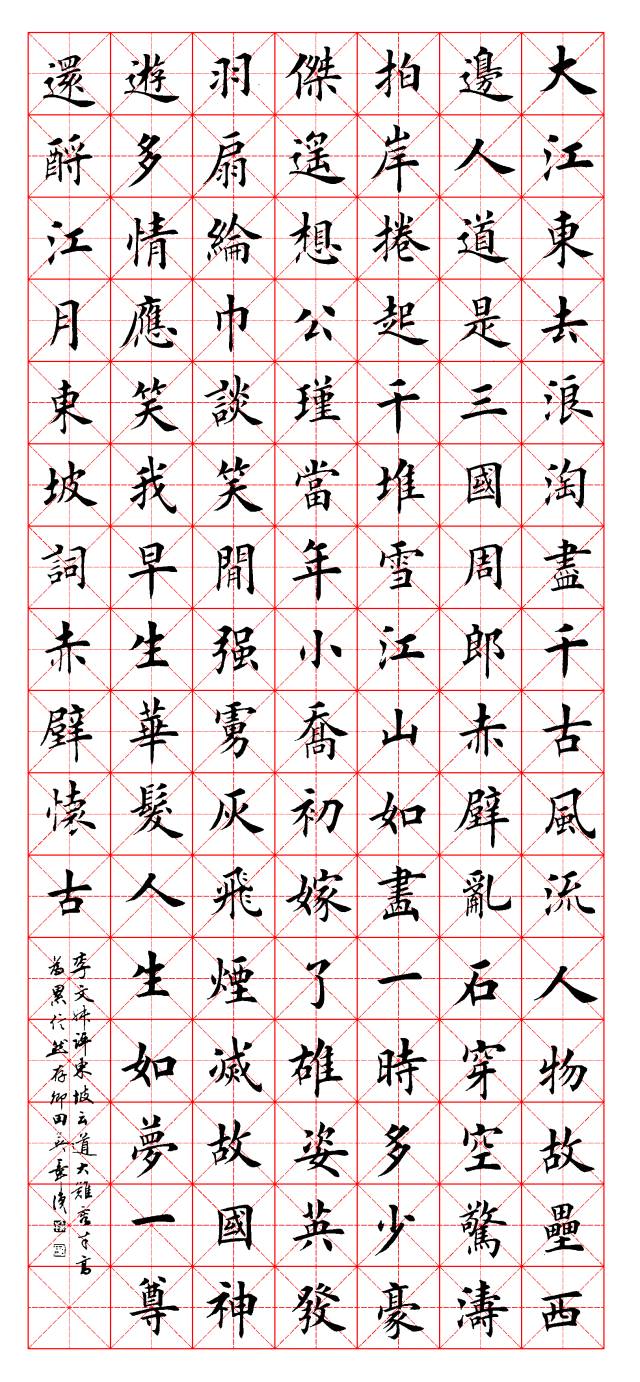 大江東去浪淘盡千古風流人物故壘西
邊人道是三國周郎赤壁亂石穿空驚濤
拍岸捲起千堆雪江山如畫一時多少豪
傑遙想公瑾當年小喬初嫁了雄姿英發
羽扇綸巾談笑閒强虜灰飛煙滅故國神
遊多情應笑我早生華髮人生如夢一尊
還酹江月東坡詞赤壁懷古
李文姝評東坡云道大難容才高
為累信然存卿田英章